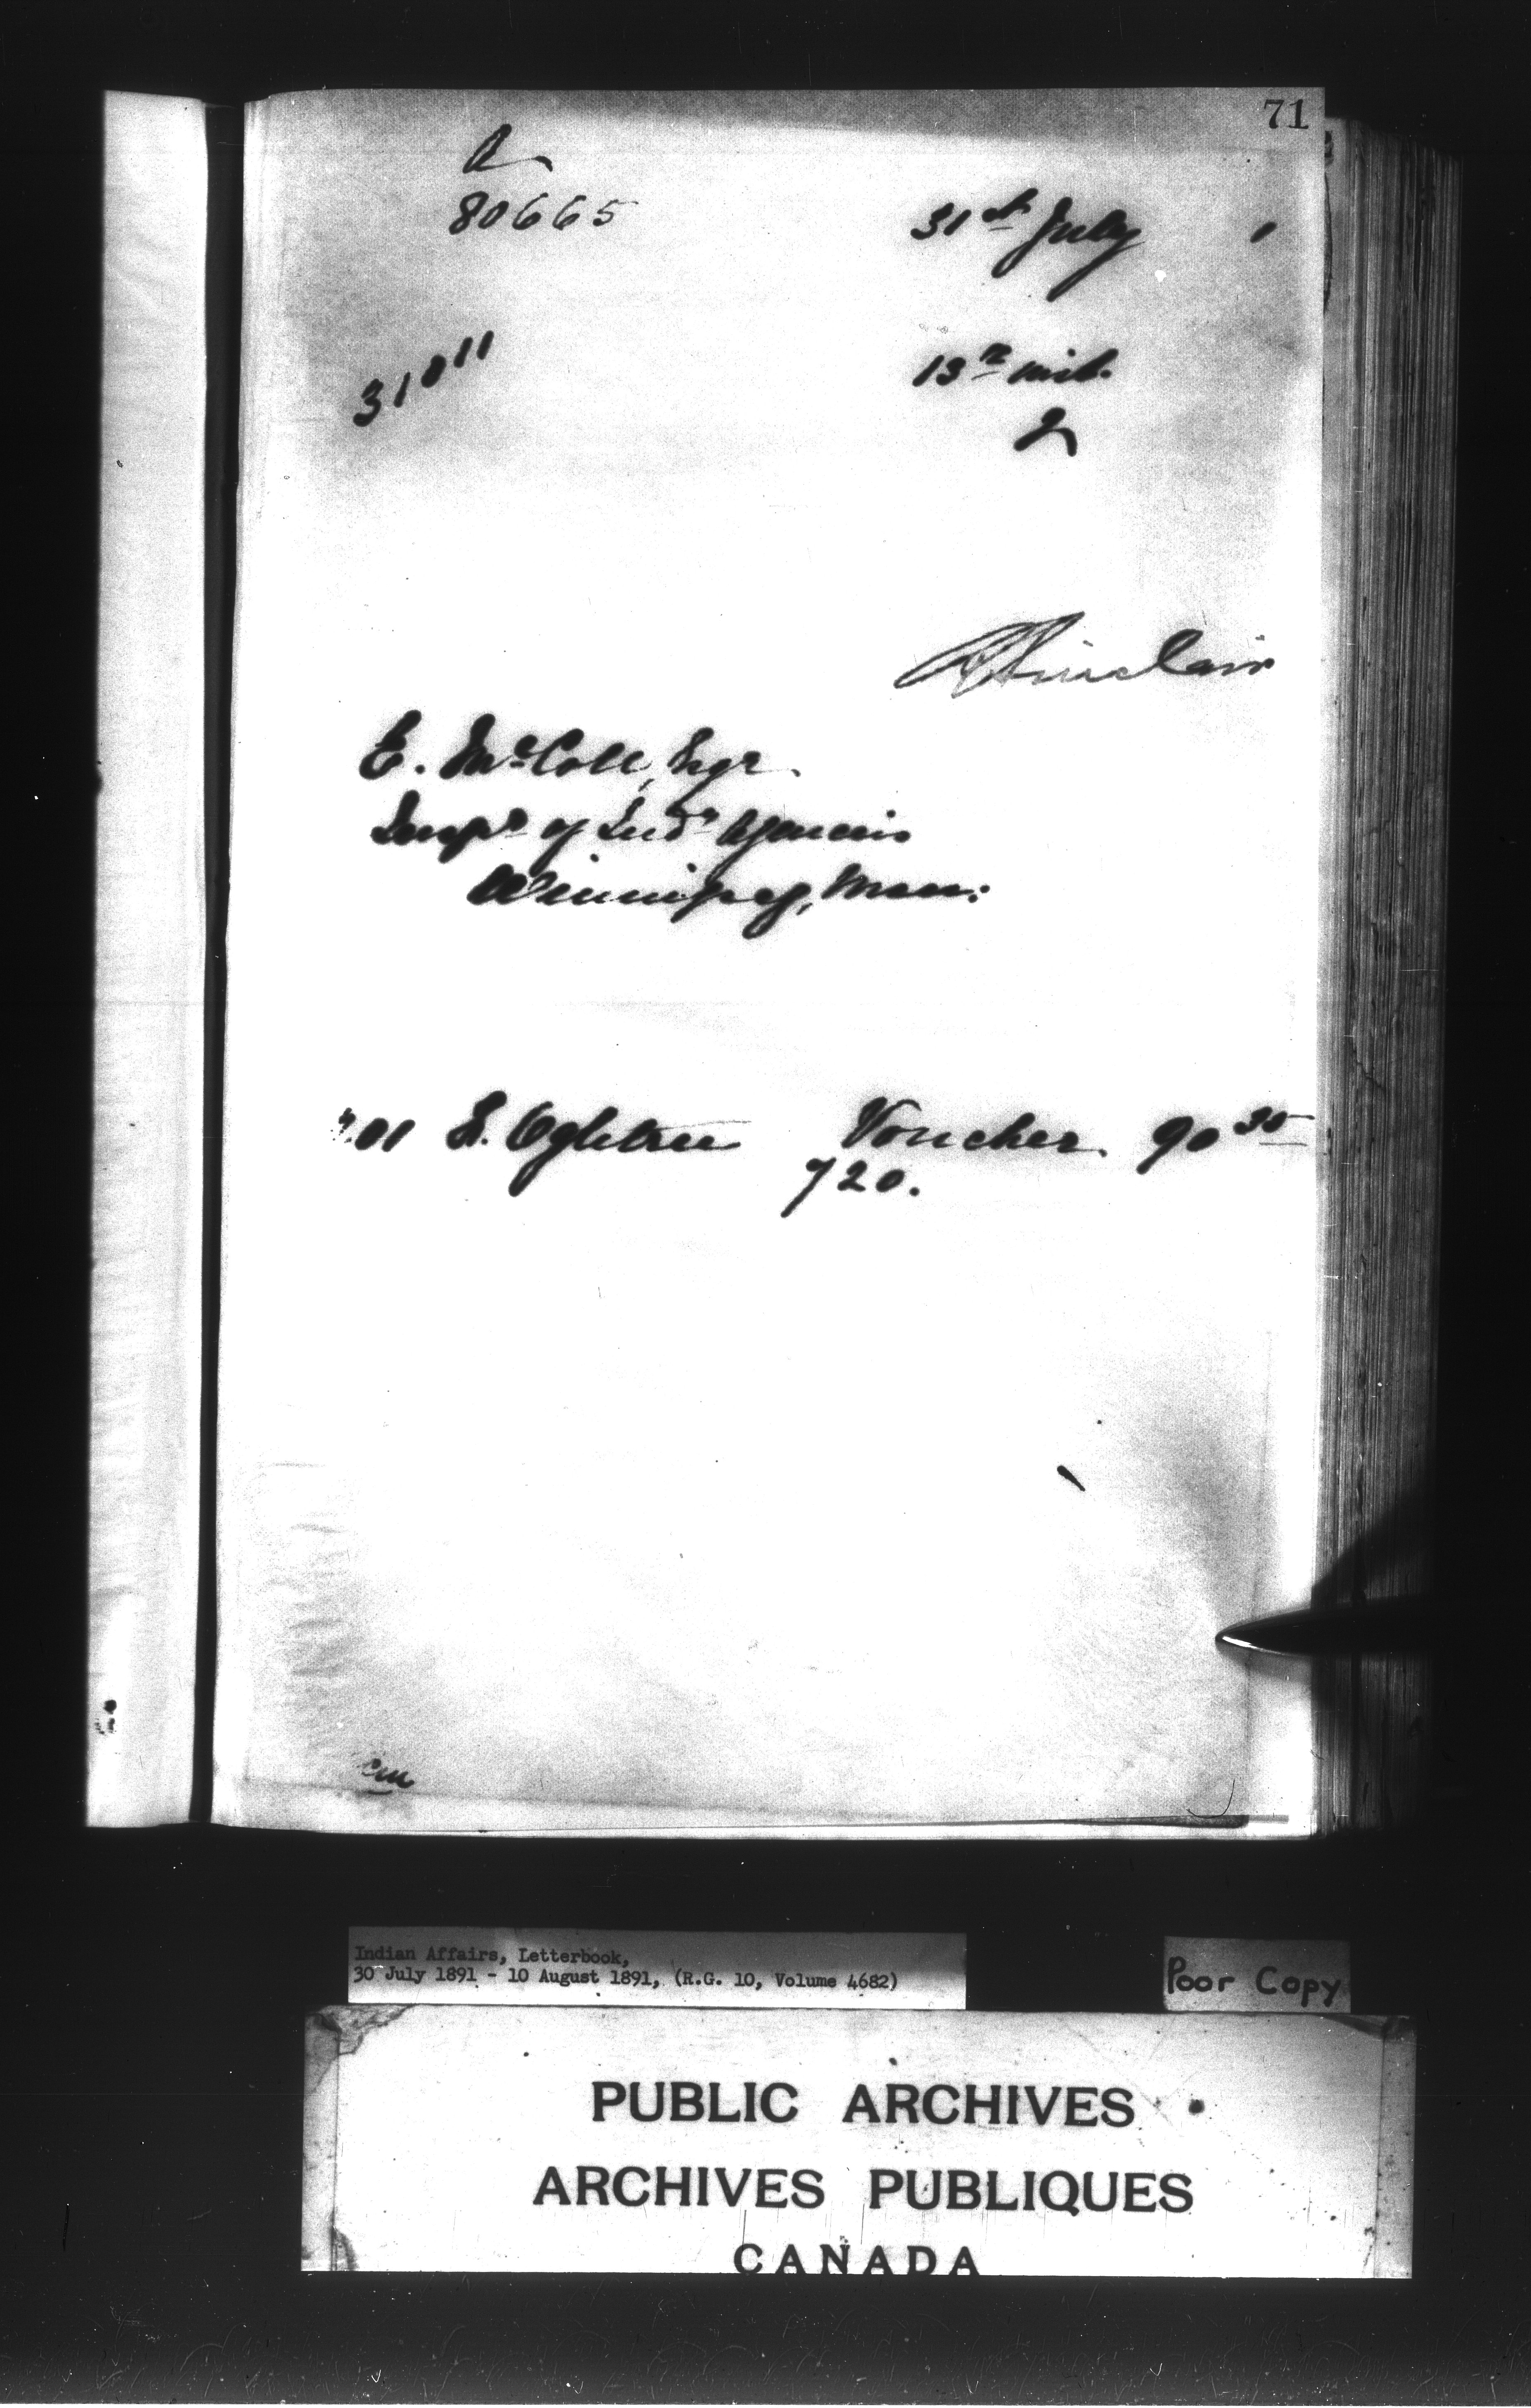 71
80665
31st July 1
31011
13th inst.
2
Sinclair
E. McColl, Esqr.
Inspr of Indn Agencies
Winnipeg, Man:
01 F. Ogletree Voucher 90 35
720.
Indian Affairs, Letterbook,
30 July 1891 - 10 August 1891, (R.G. 10, Volume 4682)
Poor Copy
PUBLIC ARCHIVES
ARCHIVES PUBLIQUES
CANADA